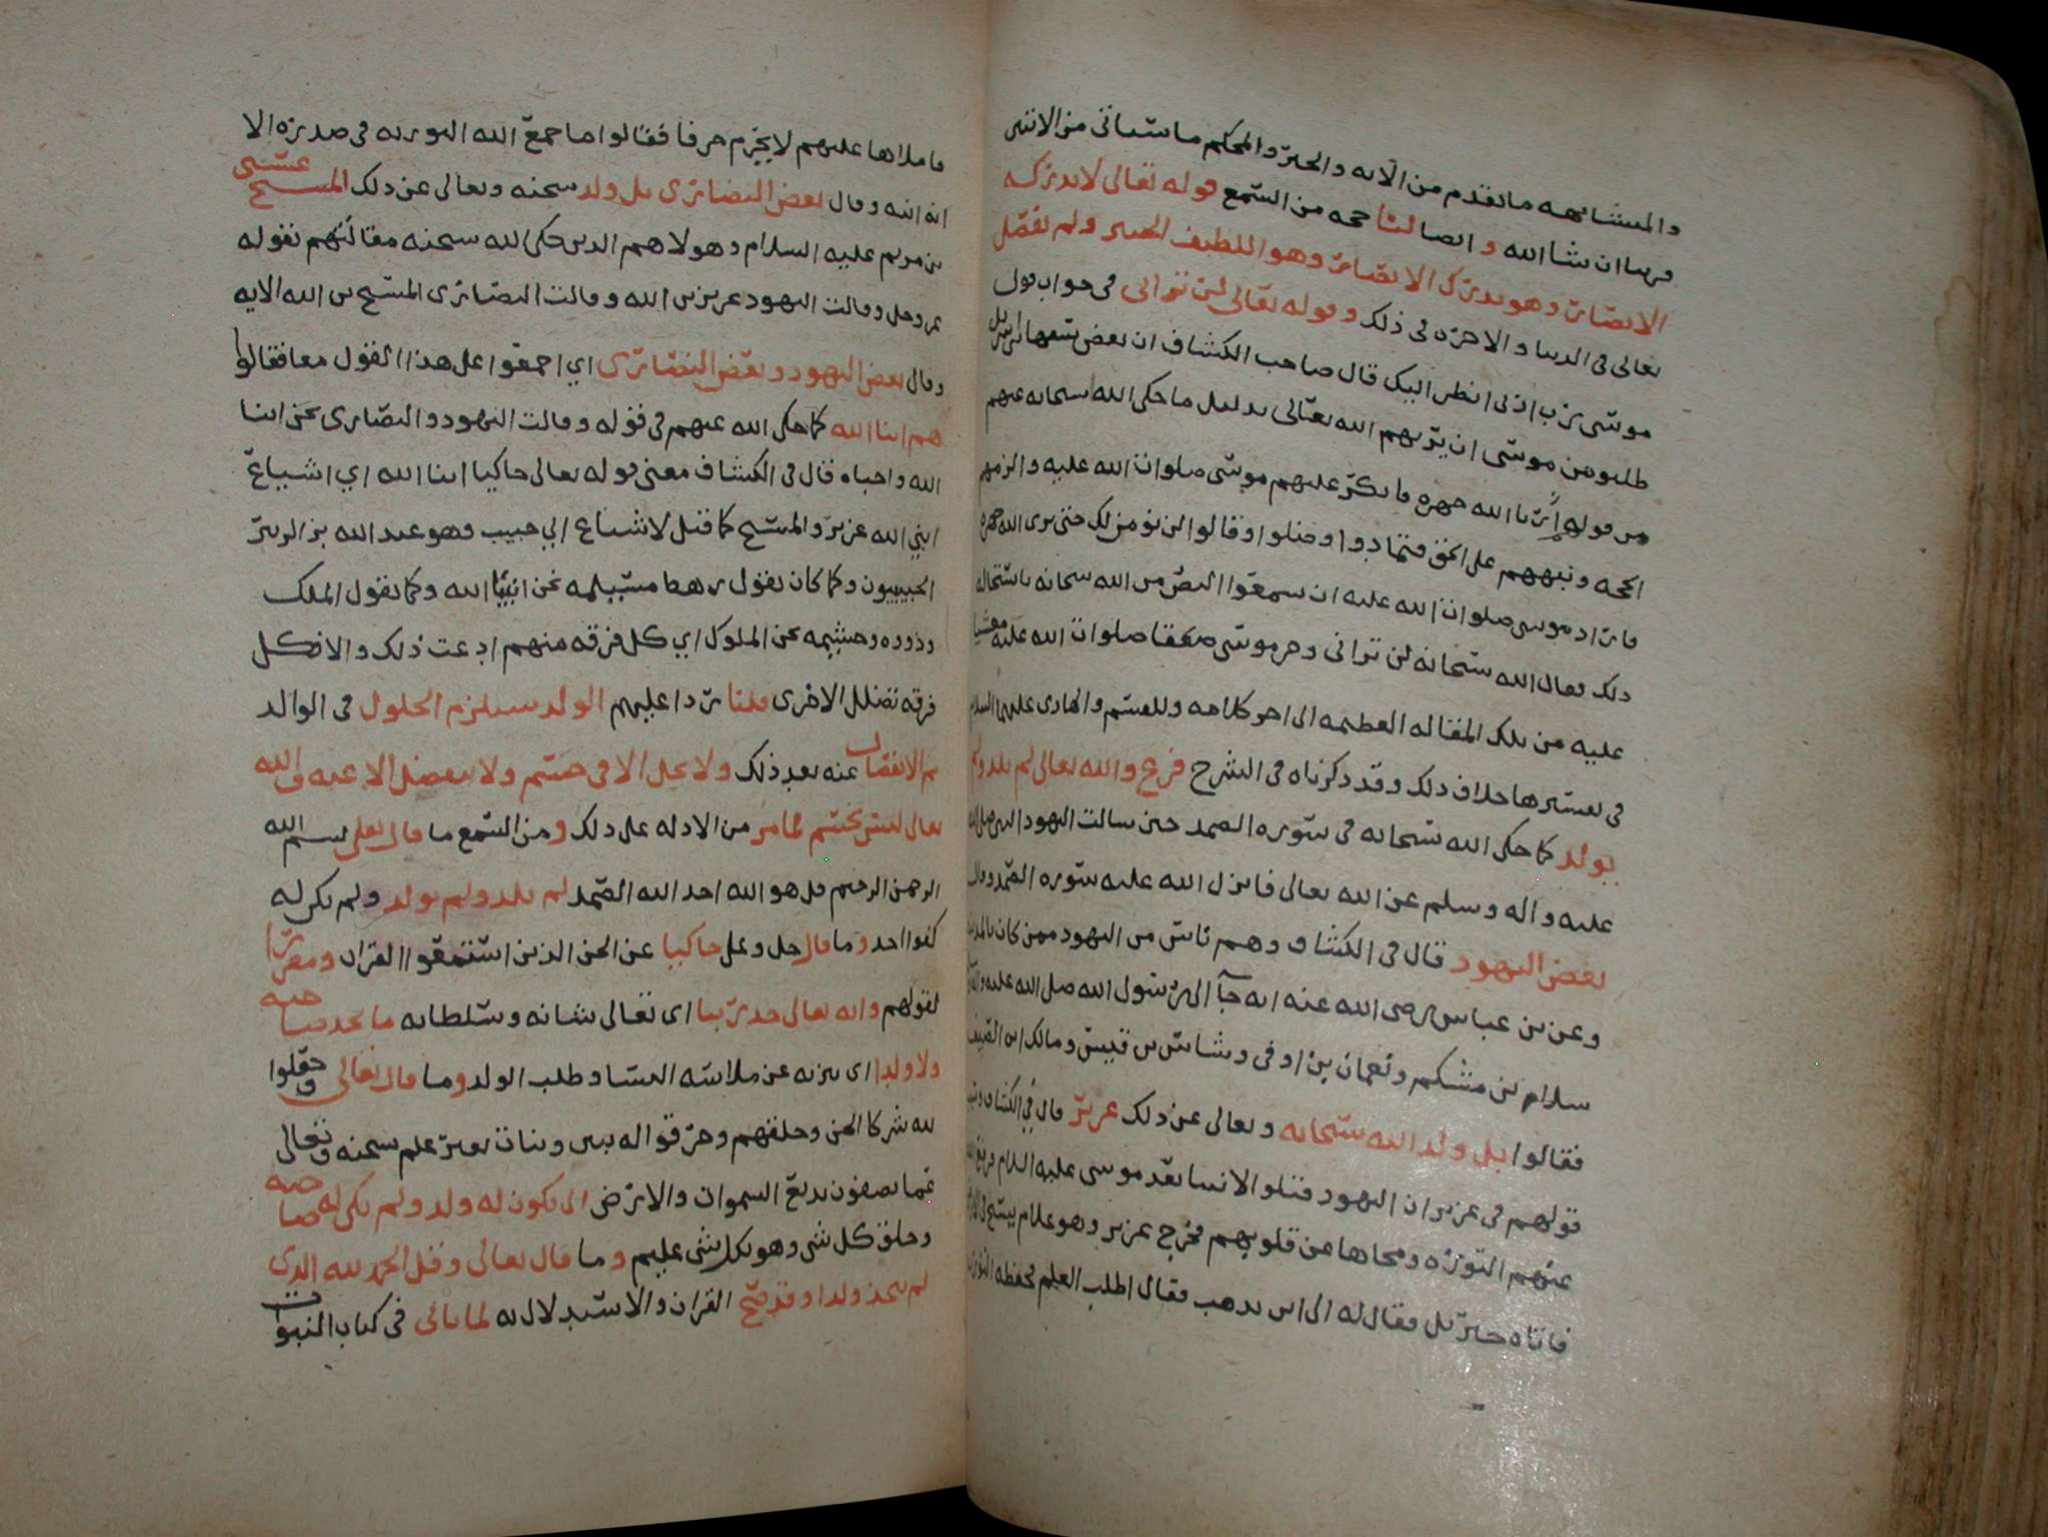 والمتشابهه ما تقدم من الآيه والخبر والمحكم ما سياتي من الاثنين
قريبا ان شا الله و ايضا لنا حجه من السمع قوله تعالى لا تدركه
الابصار وهو يدرك الابصار وهو اللطيف الخبير ولم يفصل
تعالى في الدنيا والاخره في ذلك وقوله تعالى لن تراني في جواب قول
موسى رب ارني انظر اليك قال صاحب الكشاف ان بعض سفها اسرائيل
طلبو من موسى ان يريهم الله تعالى بدليل ما حكى الله سبحانه عنهم
من قوله ارنا الله جهره فانكر عليهم موسى صلوات الله عليه والزمهم
الحجه ونبههم على الحق فتمادوا وضلوا وقالوا لن نومن لك حتى نرى الله جهره
فاراد موسى صلوات الله عليه ان سمعوا النص من الله سبحانه باستحاله
ذلك فقال الله سبحانه لن تراني وخر موسى صعقا صلوات الله عليه مغشيا
عليه من تلك المقاله العظيمه الى اخر كلامه وللقسم والهادي عليهما السلام
في تفسيرها خلاف ذلك وقد ذكرناه في الشرح فرع والله تعالى لم يلد ولم
يولد كما حكى الله سبحانه في سوره الصمد حين سالت اليهود النبي صلى الله
عليه واله وسلم عن الله تعالى فانزل الله عليه سوره الصمد وقال
بعض اليهود قال في الكشاف وهم ناس من اليهود ممن كان بالمدينه
وعن بن عباس رضى الله عنه انه جآ الى رسول الله صلى الله عليه واله
سلام بن مشكم ونعمان بن اوفى وشاس بن قيس ومالك بن الصيف
فقالوا بل ولد الله سبحانه وتعالى عن ذلك عزير قال في الكشاف وسبب
قولهم في عزير ان اليهود قتلوا الانبيا بعد موسى عليه السلام فرفع الله
عنهم التوراه ومحاها عن قلوبهم فخرج عزير وهو غلام يسيح في الارض
فاتاه جبريل فقال له الى اين تذهب فقال اطلب العلم فحفظه التوراه
فاملاها عليهم لا يخرم حرفا فقالوا ما جمع الله التوريه في صدره الا
انه ابنه وقال بعض النصارى بل ولد سبحنه وتعالى عن ذلك المسيح عيسى
بن مريم عليه السلام وهولا هم الذين حكى الله سبحنه مقالتهم بقوله
عز وجل وقالت اليهود عزير بن الله وقالت النصارى المسيح بن الله الايه
وقال بعض اليهود وبعض النصارى اي اجمعوا على هذا القول معا فقالوا
هم ابنا الله كما حكى الله عنهم في قوله وقالت اليهود والنصارى نحن ابنا
الله واحباه قال في الكشاف معنى قوله تعالى حاكيا ابنا الله اي اشياع
ابني الله عزير والمسيح كما قيل لاشياع ابي خبيب وهو عبد الله بن الزبير
الخبيبيون وكما كان يقول رهط مسيلمه نحن انبيا الله وكما يقول الملك
وذووه وحشيمه نحن الملوك اي كل فرقه منهم ادعت ذلك والا فكل
فرقه تضلل الاخرى قلنا ردا عليهم الولد يستلزم الحلول في الوالد
ثم الانفصال عنه بعد ذلك ولا يحل الا في جسم ولا ينفصل الا عنه والله
تعالى ليس بجسم لما مر من الادله على ذلك و من السمع ما قال تعلى بسم الله
الرحمن الرحيم قل هو الله احد الله الصمد لم يلد ولم يولد ولم يكن له
كفوا احد و ما قال جل وعلى حاكيا عن الجن الذين استمعوا القران ومقررا
لقولهم وانه تعالى جد ربنا اي تعالى شانه وسلطانه ما اتخذ صاحبه
ولا ولدا اي تنزه عن ملابسه النسا وطلب الولد و ما قال تعالى وجعلوا
لله شركا الجن وخلقهم وخرقوا له بنين وبنات بغير علم سبحنه وتعالى
عما يصفون بديع السموات والارض انى يكون له ولد ولم يكن له صاحبه
وخلق كل شى وهو بكل شى عليم و ما قال تعالى وقل الحمد لله الذي
لم يتخذ ولدا وقد صح القران والاستدلال به لما ياتى في كتاب النبوات